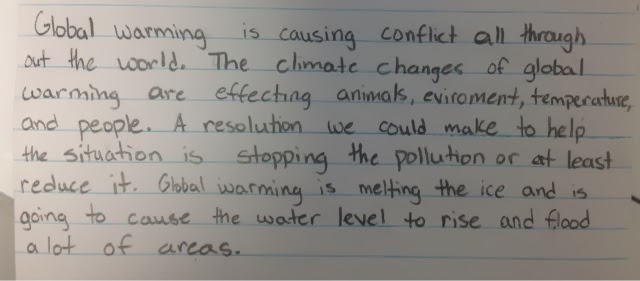 Global warming is causing conflict all through
out the world. The climate changes of global
warming are effecting animals, eviroment, temperature,
and people. A resolution we could make to help
the situation is stopping the pollution or at least
reduce it. Global warming is melting the ice and is
going to cause the water level to rise and flood
a lot of areas.